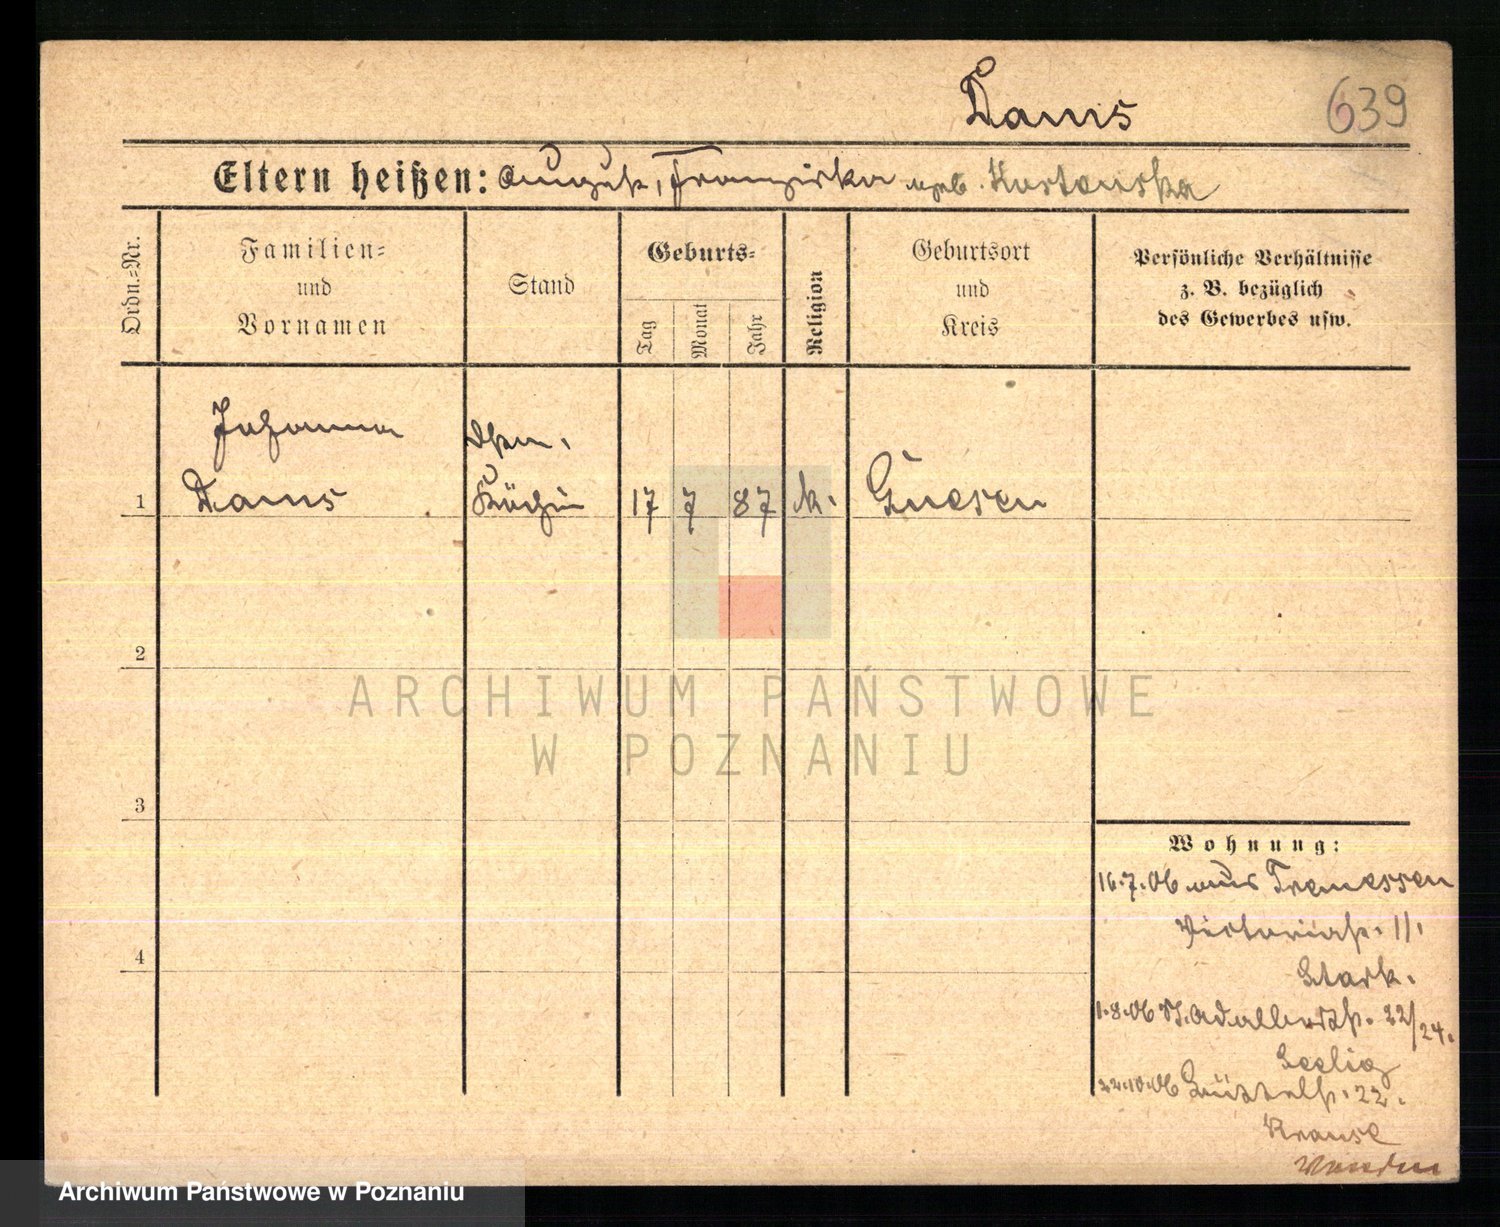 Dams
639
Eltern heißen: August, Franziska geb.
Ordn.-Nr.
Familien- und Vornamen
Stand
Geburts-
Tag
Monat
Jahr
Religion
Geburtsort und Kreis
Persönliche Verhältnisse z. B. bezüglich des Gewerbes usw.
Johanna
1 Dams Köchin 17 7 87 k. Gnesen
2
3
4
Wohnung:
16.7.06 aus Tremessen
Victoriastr. 11.
Stark.
1.8.06 St. Adalbertstr. 22/24.
Seelig
22.10.06 22.
Krause
ARCHIWUM PAŃSTWOWE
W POZNANIU
Archiwum Państwowe w Poznaniu